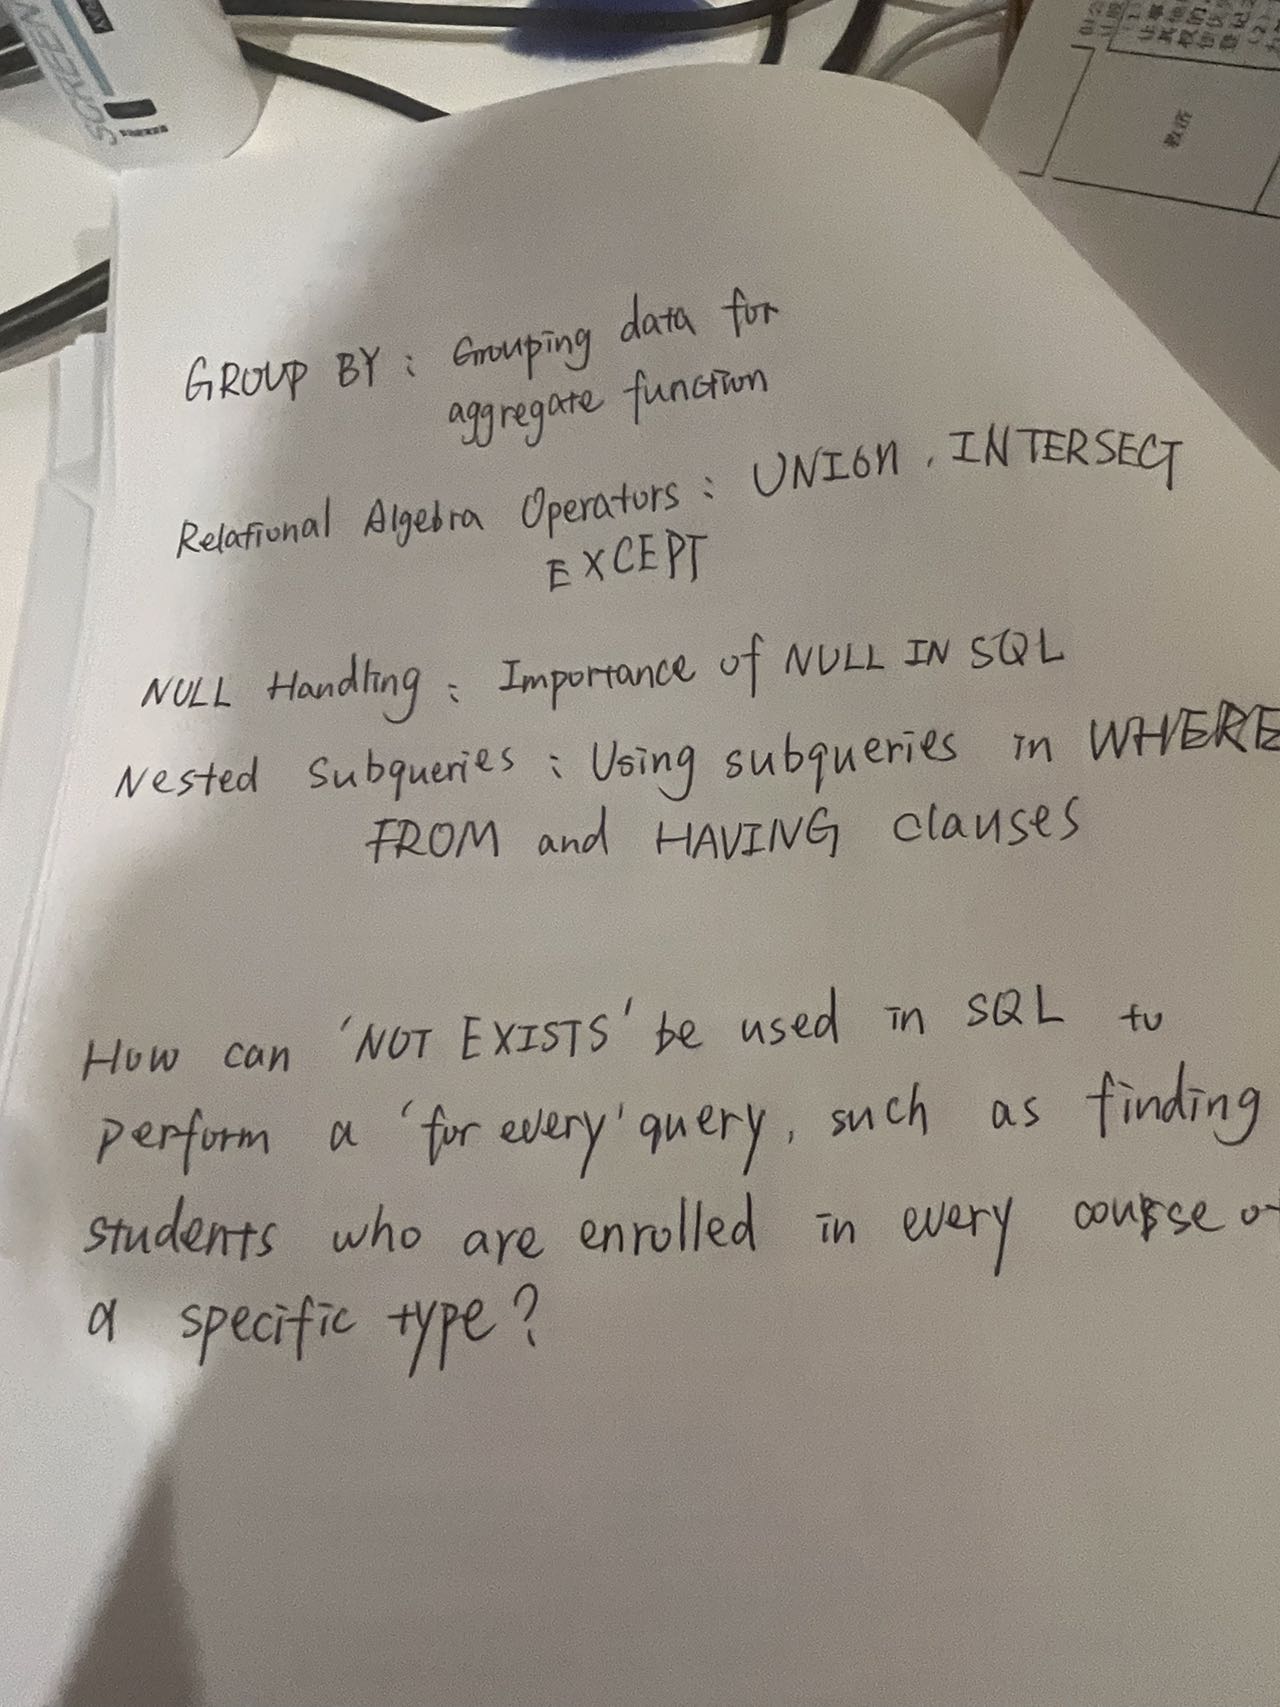 SCREEN
教活
GROUP BY : Grouping data for
aggregate function
Relational Algebra Operators : UNION , INTERSECT
EXCEPT
NULL Handling : Importance of NULL IN SQL
Nested Subqueries : Using subqueries in WHERE
FROM and HAVING clauses
How can 'NOT EXISTS' be used in SQL to
perform a 'for every' query, such as finding
students who are enrolled in every course
a specific type?